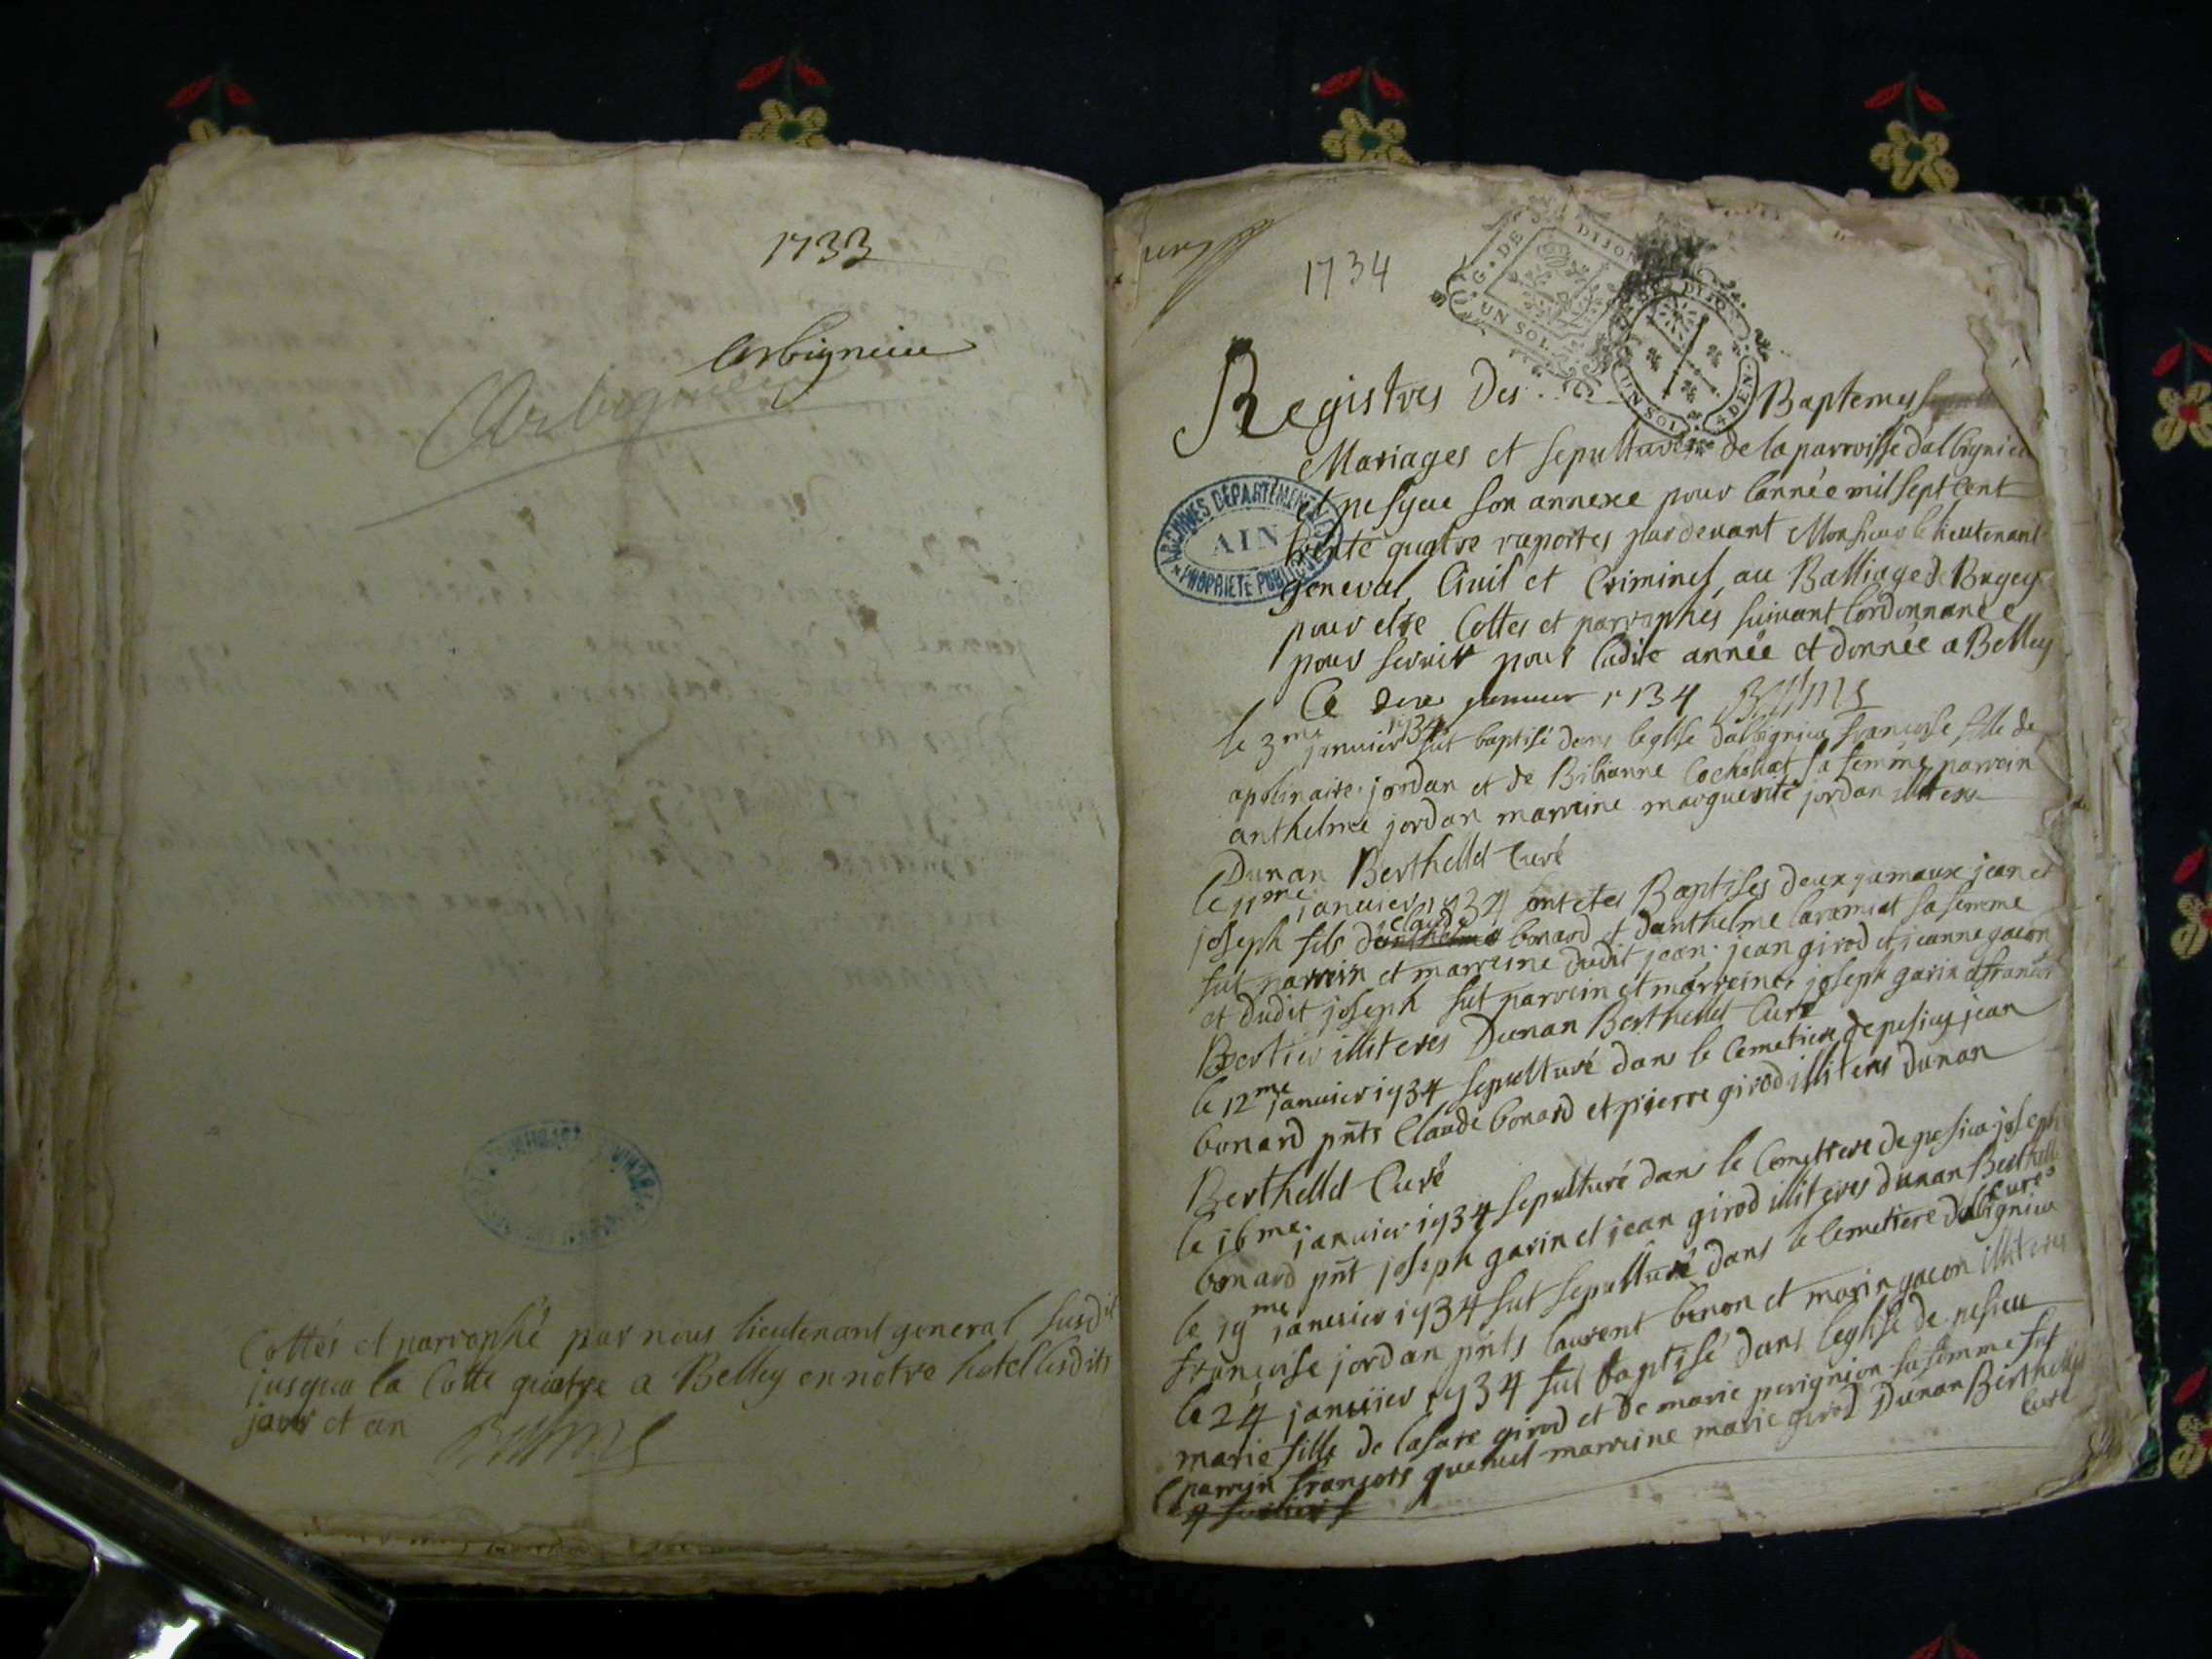 1733
Arbignieu
Arbignieu
Cottés et parraphé par nous lieutenant general susdit
jusqua la Cotte quatre a Belley en nôtre hotel lesdits
jour et an
1734
G. DE DIJON
UN SOL
UN SOL 4 DEN.
Registres Des Baptemes
Mariages et sepultures de la parroisse dalbignieu
et pesyeu son annexe pour lannée mil sept cent
trente quatre raportes par devant Monsieur le lieutenant
general Civil et Criminel au Balliage de Bugey
pour estre Cottes et parraphés suivant lordonnance
pour servir pour ladite année et donnée a Belley
Ce janvier 1734
ARCHIVES DEPARTEMENTALES
AIN
PROPRIETE PUBLIQUE
le 3me janvier 1734 fut baptisé dans leglise dalbignieu francoise fille de
apolinaire jordan et de Bibianne Cochonat sa femme parrein
anthelme jordan marreine marguerite jordan illiteres
Dunan Berthellet Curé
le 11me janvier 1734 sont etes Baptises deux jumaux jean et
joseph fils danthelme claude bonard et danthelme laramiat sa femme
fut parrein et marreine dudit jean jean girod et jeanne gacon
et dudit joseph fut parrein et marreine joseph garin et francois
Bertier illiteres Dunan Berthellet Curé
le 12me janvier 1734 sepulturé dans le Cemetiere de pesieu jean
bonard pnts Claude bonard et pierre girod illiteres Dunan
Berthellet Curé
le 16me janvier 1734 sepulturé dans le Cemettere de pesieu joseph
bonard pnt joseph garin et jean girod illiteres dunan Berthellet
Curé
le 19me janvier 1734 fut sepulturé dans le Cemetiere dalbignieu
françoise jordan pnts laurent benon et marin gacon illiteres
le 24 janvier 1734 fut baptisé dans leglise de pesieu
marie fille de lasare girod et de marie perignion sa femme fut
parrein françois marreine marie girod Dunan Berthellet
Curé